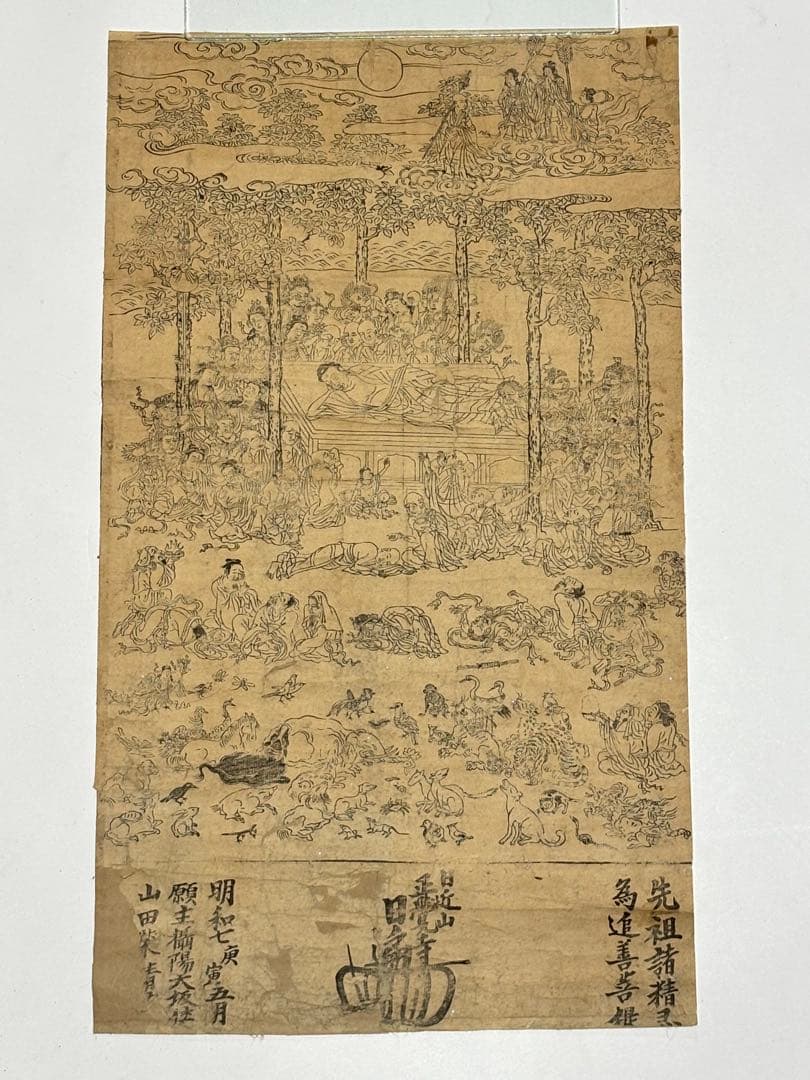 先祖諸精
為追善菩提
日近山
正覺寺
日
明和七庚寅五月
願主攝陽大坂住
山田